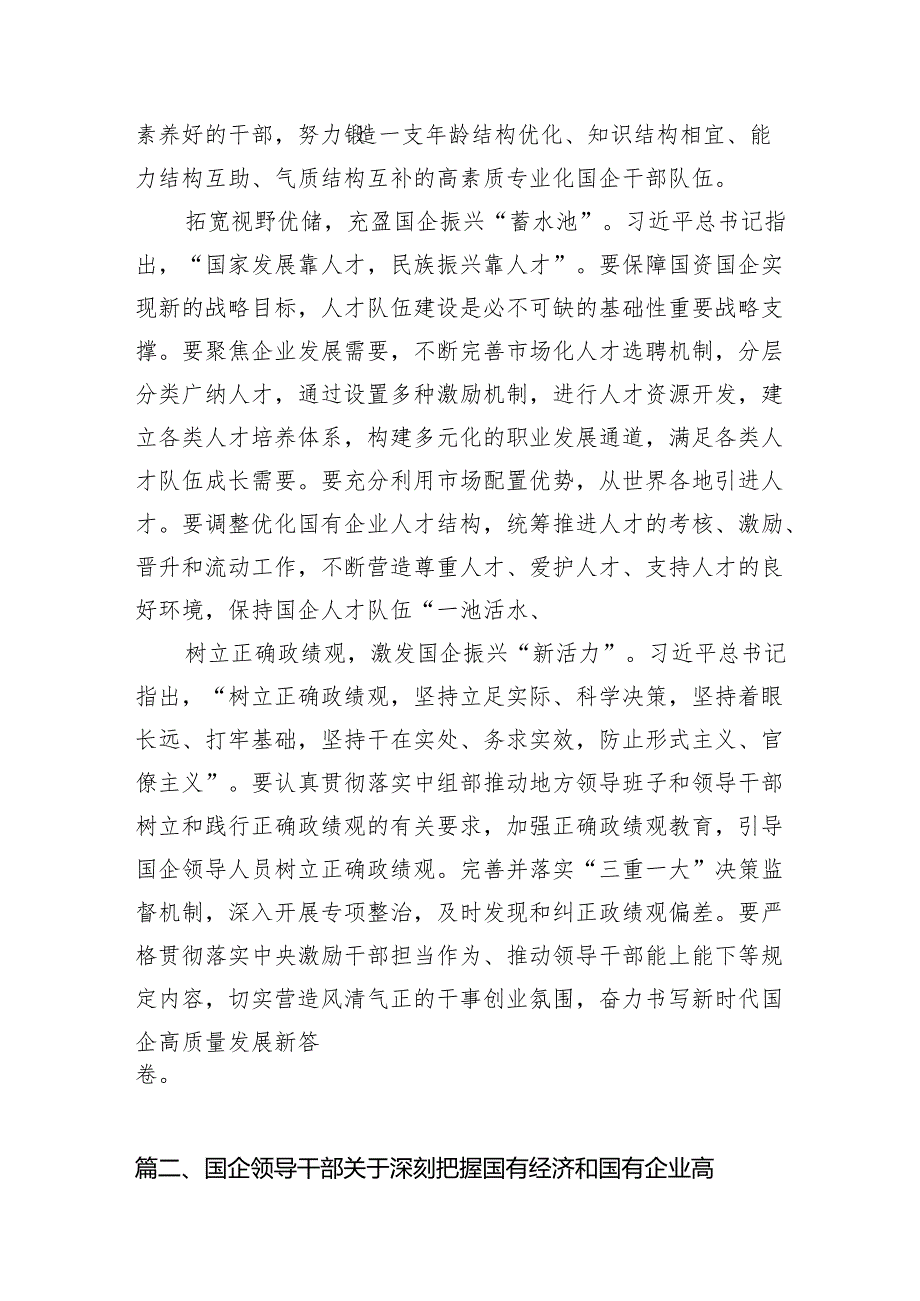 素养好的干部，努力锻造一支年龄结构优化、知识结构相宜、能
力结构互助、气质结构互补的高素质专业化国企干部队伍。
拓宽视野优储，充盈国企振兴“蓄水池”。习近平总书记指
出，“国家发展靠人才，民族振兴靠人才”。要保障国资国企实
现新的战略目标，人才队伍建设是必不可缺的基础性重要战略支
撑。要聚焦企业发展需要，不断完善市场化人才选聘机制，分层
分类广纳人才，通过设置多种激励机制，进行人才资源开发，建
立各类人才培养体系，构建多元化的职业发展通道，满足各类人
才队伍成长需要。要充分利用市场配置优势，从世界各地引进人
才。要调整优化国有企业人才结构，统筹推进人才的考核、激励、
晋升和流动工作，不断营造尊重人才、爱护人才、支持人才的良
好环境，保持国企人才队伍“一池活水、
树立正确政绩观，激发国企振兴“新活力”。习近平总书记
指出，“树立正确政绩观，坚持立足实际、科学决策，坚持着眼
长远、打牢基础，坚持干在实处、务求实效，防止形式主义、官
僚主义”。要认真贯彻落实中组部推动地方领导班子和领导干部
树立和践行正确政绩观的有关要求，加强正确政绩观教育，引导
国企领导人员树立正确政绩观。完善并落实“三重一大”决策监
督机制，深入开展专项整治，及时发现和纠正政绩观偏差。要严
格贯彻落实中央激励干部担当作为、推动领导干部能上能下等规
定内容，切实营造风清气正的干事创业氛围，奋力书写新时代国
企高质量发展新答
卷。
篇二、国企领导干部关于深刻把握国有经济和国有企业高